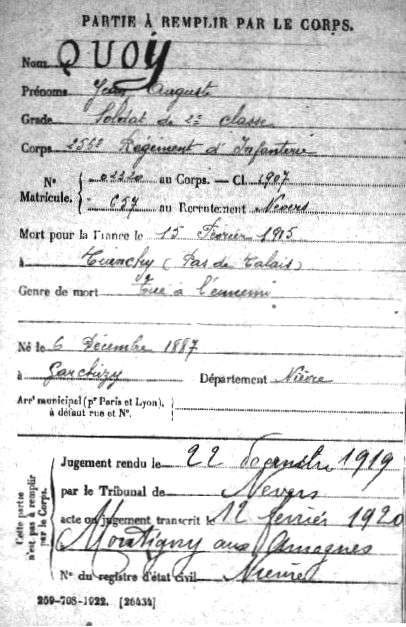 PARTIE À REMPLIR PAR LE CORPS.
Nom QUOY
Prénoms Jean Auguste
Grade Soldat de 2e classe
Corps 256e Régiment d'Infanterie
N° Matricule. { 02220 au Corps. — Cl. 1907
657 au Recrutement Nevers
Mort pour la France le 15 Février 1915
à Cuinchy (Pas de Calais)
Genre de mort Tué à l'ennemi
Né le 6 Décembre 1887
à Garchizy Département Nièvre
Arrt municipal (pr Paris et Lyon),
à défaut rue et N°.
Cette partie n'est pas à remplir par le Corps.
Jugement rendu le 22 Décembre 1919
par le Tribunal de Nevers
acte ou jugement transcrit le 12 février 1920
Montigny aux Amognes
N° du registre d'état civil Nièvre
259-708-1922. [26434]